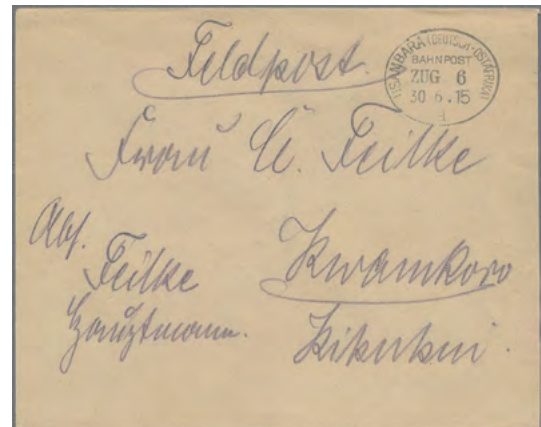 Feldpost.
USAMBARA (DEUTSCH-OSTAFRIKA)
BAHNPOST
ZUG 6
30 6.15
Frau C. Feilke
Abs.
Feilke
Hauptmann.
Kwamkoro
Kihuhui.